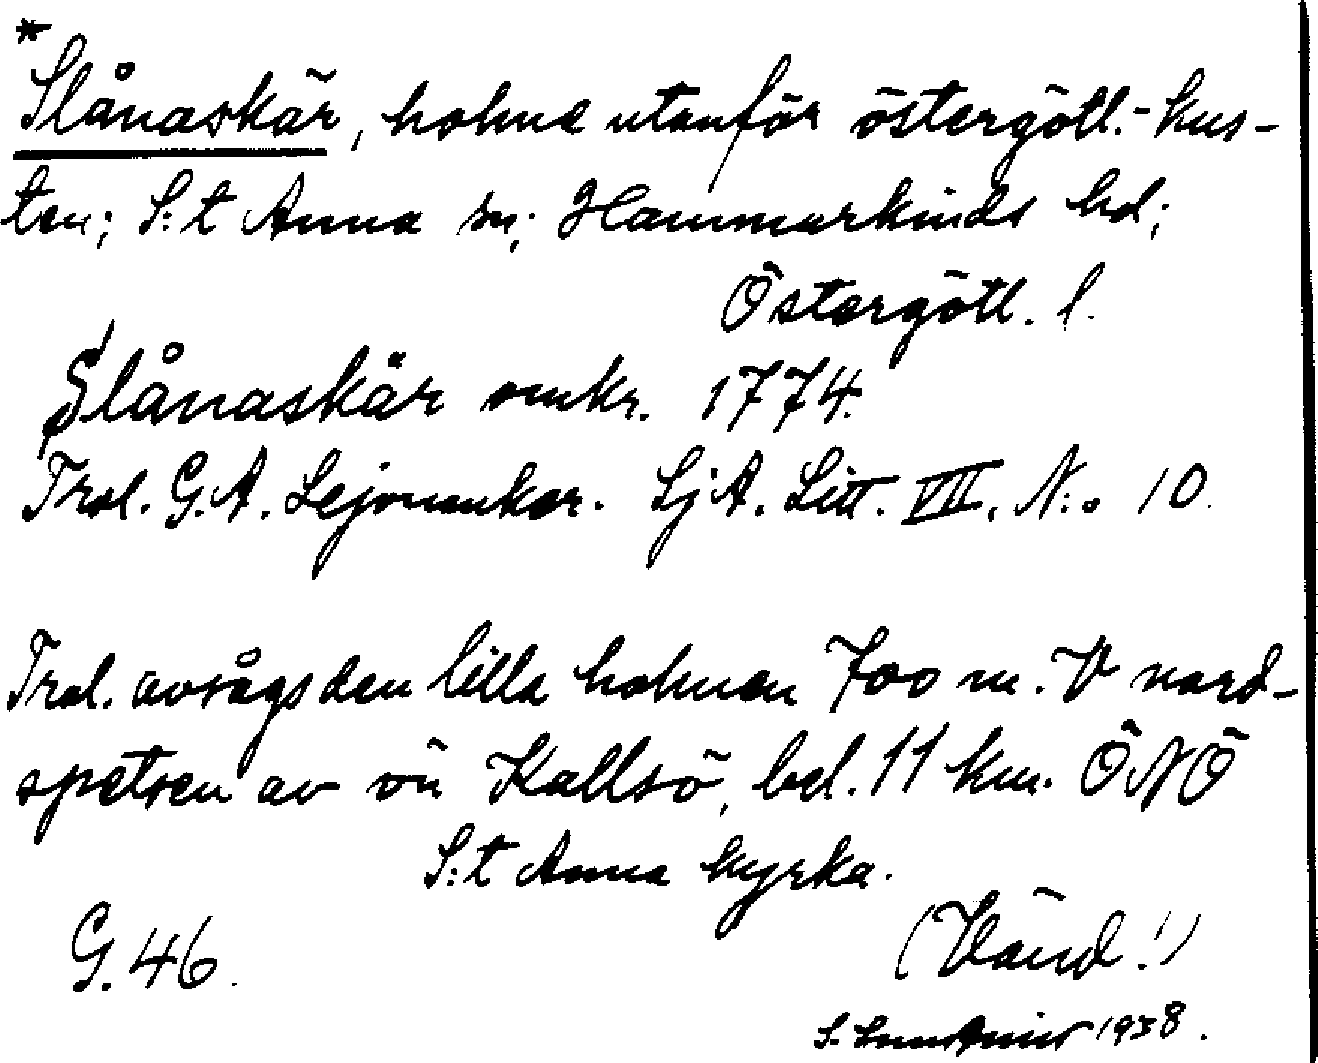 *Slånaskär, holme utanför östergötl.-kus-
ten; S:t Anna sn; Hammarkinds hd;
Östergötl. l.
Slånaskär omkr. 1774.
Trol. G.A. Lejonankar. LjA. Litt. VII. N:o 10.
Trol. avsågs den lilla holmen 700 m. V nord-
spetsen av ön Kallsö, bel. 11 km. ÖNÖ
S:t Anna kyrka.
G. 46.
(Vänd!)
S. 1938.